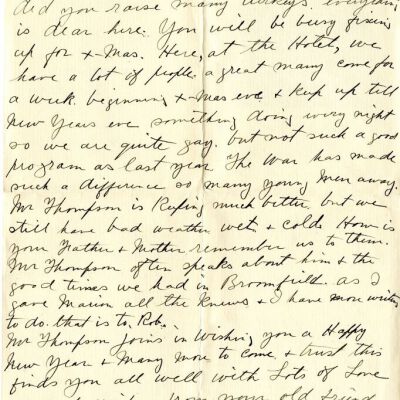 did you raise many turkeys everything
is dear here. You will be busy fixing
up for X-Mas. Here, at the Hotel, we
have a lot of people. a great many come for
a week. beginning X-Mas eve & keep up till
New Years eve something doing every night
so we are quite gay. but not such a good
program as last year The War has made
such a difference so many young men away.
Mr Thompson is keeping much better but we
still have bad weather wet & cold. How is
your Father & Mother remember us to them.
Mr Thompson often speaks about him & the
good times we had in Broomfield. as I
gave Marion all the knews & I have more writing
to do. that is to, Rob.
Mr Thompson joins in Wishing you a Happy
New Year & Many more to come & trust this
finds you all well with Lots of Love
from your old friend